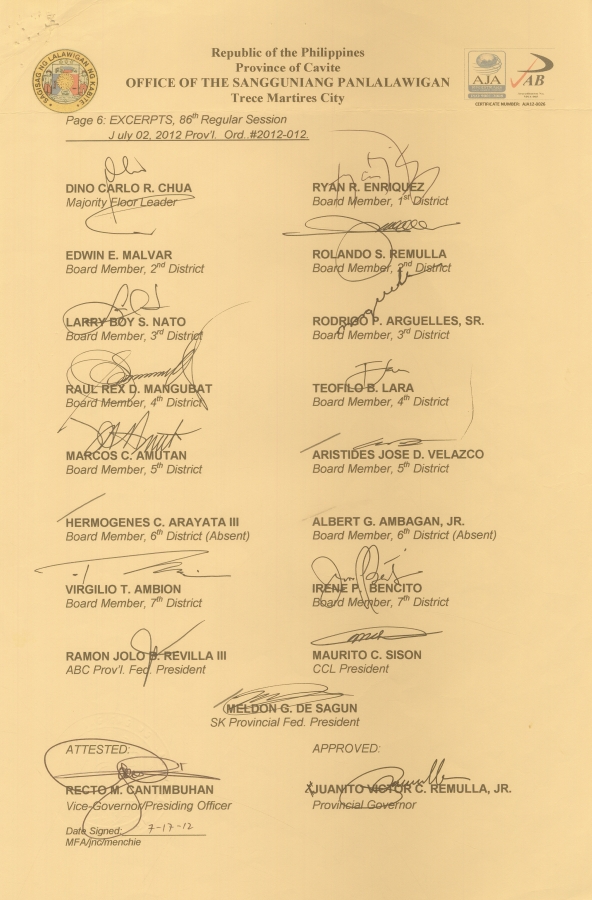 Republic of the Philippines
Province of Cavite
OFFICE OF THE SANGGUNIANG PANLALAWIGAN
Trece Martires City
AJA
JAB
CERTIFICATE NUMBER: AJA12-0026
Page 6: EXCERPTS, 86th Regular Session
July 02, 2012 Prov'l. Ord. #2012-012.
DINO CARLO R. CHUA
Majority Floor Leader
RYAN R. ENRIQUEZ
Board Member, 1st District
EDWIN E. MALVAR
Board Member, 2nd District
ROLANDO S. REMULLA
Board Member, 2nd District
LARRY BOY S. NATO
Board Member, 3rd District
RODRIGO P. ARGUELLES, SR.
Board Member, 3rd District
RAUL REX D. MANGUBAT
Board Member, 4th District
TEOFILO B. LARA
Board Member, 4th District
MARCOS C. AMUTAN
Board Member, 5th District
ARISTIDES JOSE D. VELAZCO
Board Member, 5th District
HERMOGENES C. ARAYATA III
Board Member, 6th District (Absent)
ALBERT G. AMBAGAN, JR.
Board Member, 6th District (Absent)
VIRGILIO T. AMBION
Board Member, 7th District
IRENE P. BENCITO
Board Member, 7th District
RAMON JOLO B. REVILLA III
ABC Prov'l. Fed. President
MAURITO C. SISON
CCL President
MELDON G. DE SAGUN
SK Provincial Fed. President
ATTESTED:
RECTO M. CANTIMBUHAN
Vice-Governor/Presiding Officer
APPROVED:
JUANITO VICTOR C. REMULLA, JR.
Provincial Governor
Date Signed: 7-17-12
MFA/jnc/menchie